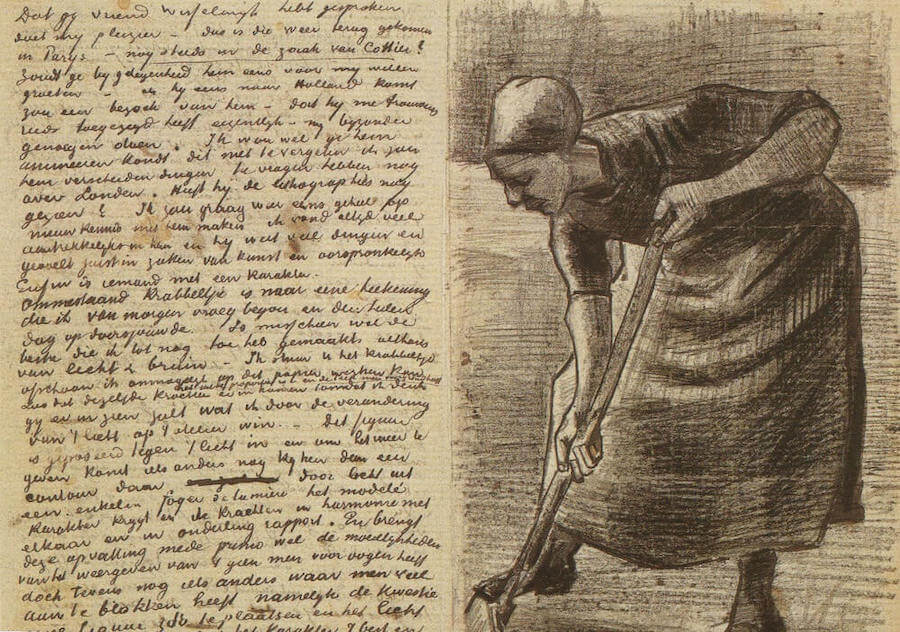 Dat gy vriend Wisselingh hebt gesproken
doet my pleizier – dus is die weer terug gekomen
in Parys – nog steeds in de zaak van Cottier?
Zoudt ge by gelegenheid hem eens voor my willen
groeten – als hy eens naar Holland komt
zou een bezoek van hem – dat hy me trouwens
reeds toegezegd heeft eigentlyk – my byzonder
genoegen doen. Ik wou wel ge hem
animeeren kondt dit niet te vergeten ik zou
hem verscheiden dingen te vragen hebben nog
over Londen. Heeft hy de lithographies nog
gezien? Ik zou graag weer eens geheel op
nieuw kennis met hem maken ik vond altyd veel
aantrekkelyks in hem en hy weet veel dingen en
gevoelt juist in zaken van kunst en oorspronkelyks
Enfin is iemand met een karakter.
Ommestaand krabbeltje is naar eene teekening
die ik van morgen vroeg begon en den heelen
dag op doorsjouwde. Is misschien wel de
beste die ik tot nog toe heb gemaakt althans
van licht & bruin – Ik stuur u het krabbeltje
ofschoon ik onmogelyk op dit papier werken kan
dus dat dezelfde krachten er in komen omdat ik denk
gy er in zien zult wat ik door de verandering
van 't licht op 't atelier win. – Dit figuur
is geposeerd tegen 't licht in en om het meer te
geven komt iets anders nog kyken dan een
contour daar door licht uit
een enkelen foyer de lumière het modelé
karakter krygt en de krachten in harmonie met
elkaar en in onderling rapport. En brengt
deze opvatting mede primo wel de moeilykheden
van het weergeven van 't geen men voor oogen heeft
doch tevens nog iets anders waar men veel
aan te blokken heeft namelyk de kwestie
figuur zóó te plaatsen en het licht
het karakter 't best en